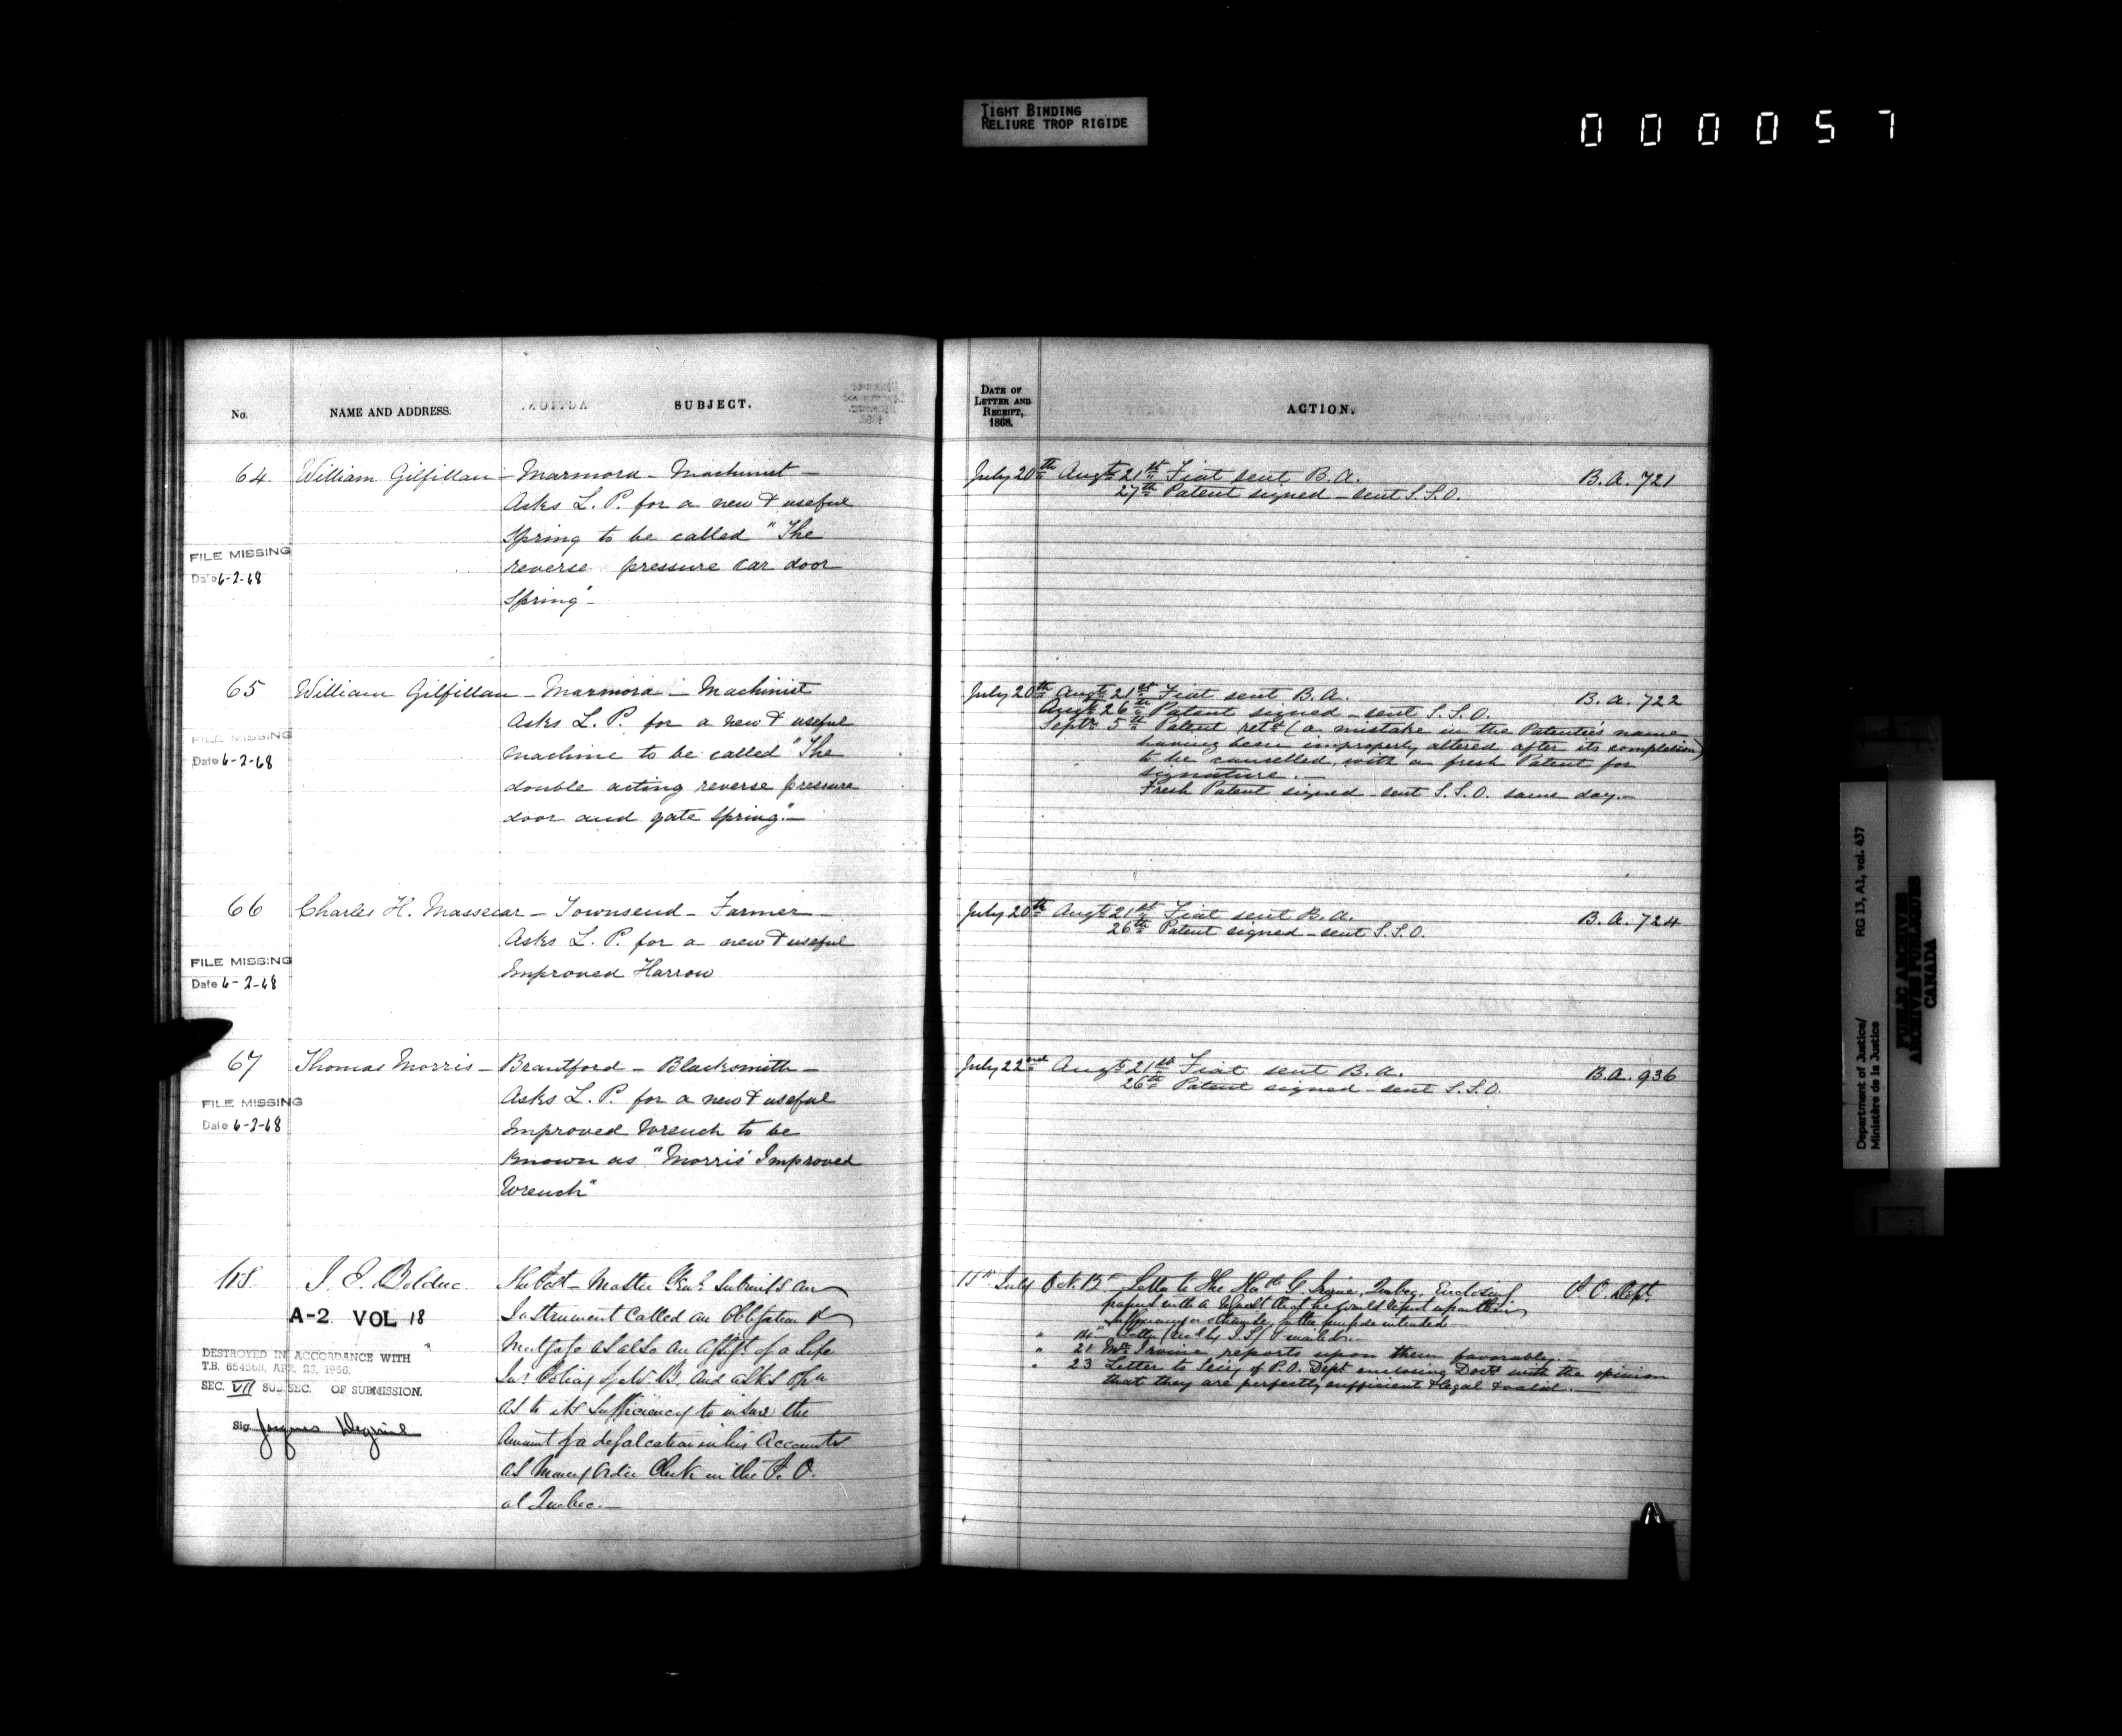 TIGHT BINDING
RELIURE TROP RIGIDE
000057
No.
NAME AND ADDRESS.
SUBJECT.
DATE OF
LETTER AND
RECEIPT,
1868.
ACTION.
64. William Gilfillan - Marmora - Machinist -
Asks L. P. for a new & useful
Spring to be called "The
reverse pressure Car door
Spring" -
FILE MISSING
Date 6-2-68
July 20th Augt 21st Fiat sent B. A.
27th Patent signed - sent S. S. O.
B. A. 721
65 William Gilfillan - Marmora - Machinist
Asks L. P. for a new & useful
machine to be called "The
double acting reverse pressure
door and gate Spring". -
FILE MISSING
Date 6-2-68
July 20th Augt 21st Fiat sent B. A.
Augt 26th Patent signed - sent S. S. O.
Septr 5th Patent retd (a mistake in the Patentee's name
having been improperly altered after its completion)
to be cancelled, with a fresh Patent for
signature. -
Fresh Patent signed - sent S. S. O. same day. -
B. A. 722
66 Charles H. Massecar - Townsend - Farmer -
Asks L. P. for a new & useful
Improved Harrow
FILE MISSING
Date 6-2-68
July 20th Augt 21st Fiat sent B. A.
26th Patent signed - sent S. S. O.
B. A. 724
67 Thomas Morris - Brantford - Blacksmith -
Asks L. P. for a new & useful
Improved Wrench to be
known as "Morris' Improved
Wrench"
FILE MISSING
Date 6-2-68
July 22nd Augt 21st Fiat sent B. A.
26th Patent signed - sent S. S. O.
B. A. 936
68 J. E. Bolduc
Master Genl. Submits an
Instrument called an Obligation &
as also an of a Life
Policy and asks
as to its Sufficiency to insure the
Amount of a defalcation in his Accounts
as Money Order Clerk in the P. O.
at Quebec. -
A-2 VOL 18
DESTROYED IN ACCORDANCE WITH
T.B. 654568, APR. 23, 1966.
SEC. VII SUB SEC. OF SUBMISSION.
Sig. Jacques
July Oct. 13th Letter to The G. Irvine, Quebec, Enclosing
papers with a request that he would report upon their
sufficiency or otherwise for the purpose intended -
" 14 " Letter
" 21 Mr. Irvine reports upon them favorably. -
" 23 Letter to Secy of P. O. Dept enclosing Docts with the opinion
that they are perfectly sufficient & legal & valid. -
P. O. Dept.
Department of Justice/
Ministère de la Justice
RG 13, A1, vol. 437
PUBLIC ARCHIVES
ARCHIVES PUBLIQUES
CANADA